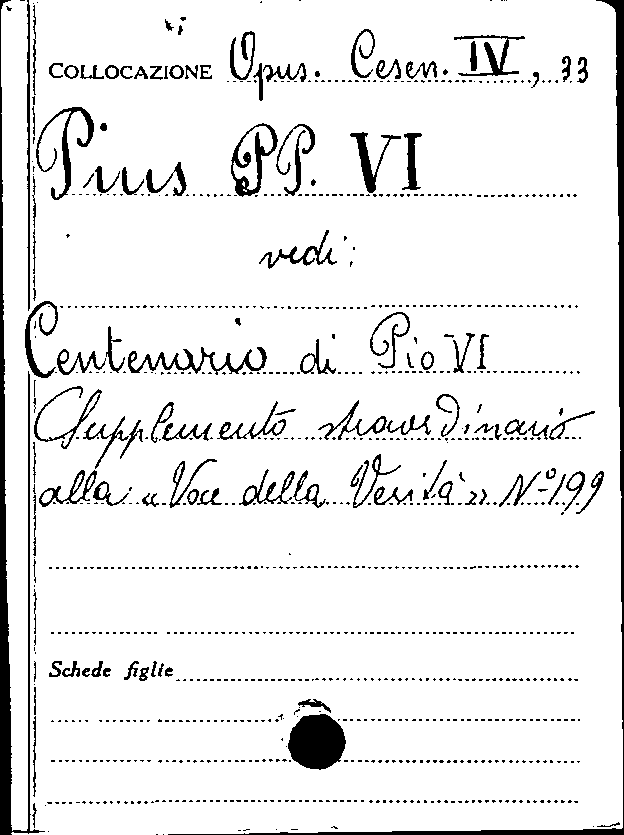 COLLOCAZIONE Opus. Cesen. IV, 33
Pius PP. VI
vedi:
Centenario di Pio VI
Supplemento straordinario
alla "Voce della Verità" N.º 199
Schede figlie